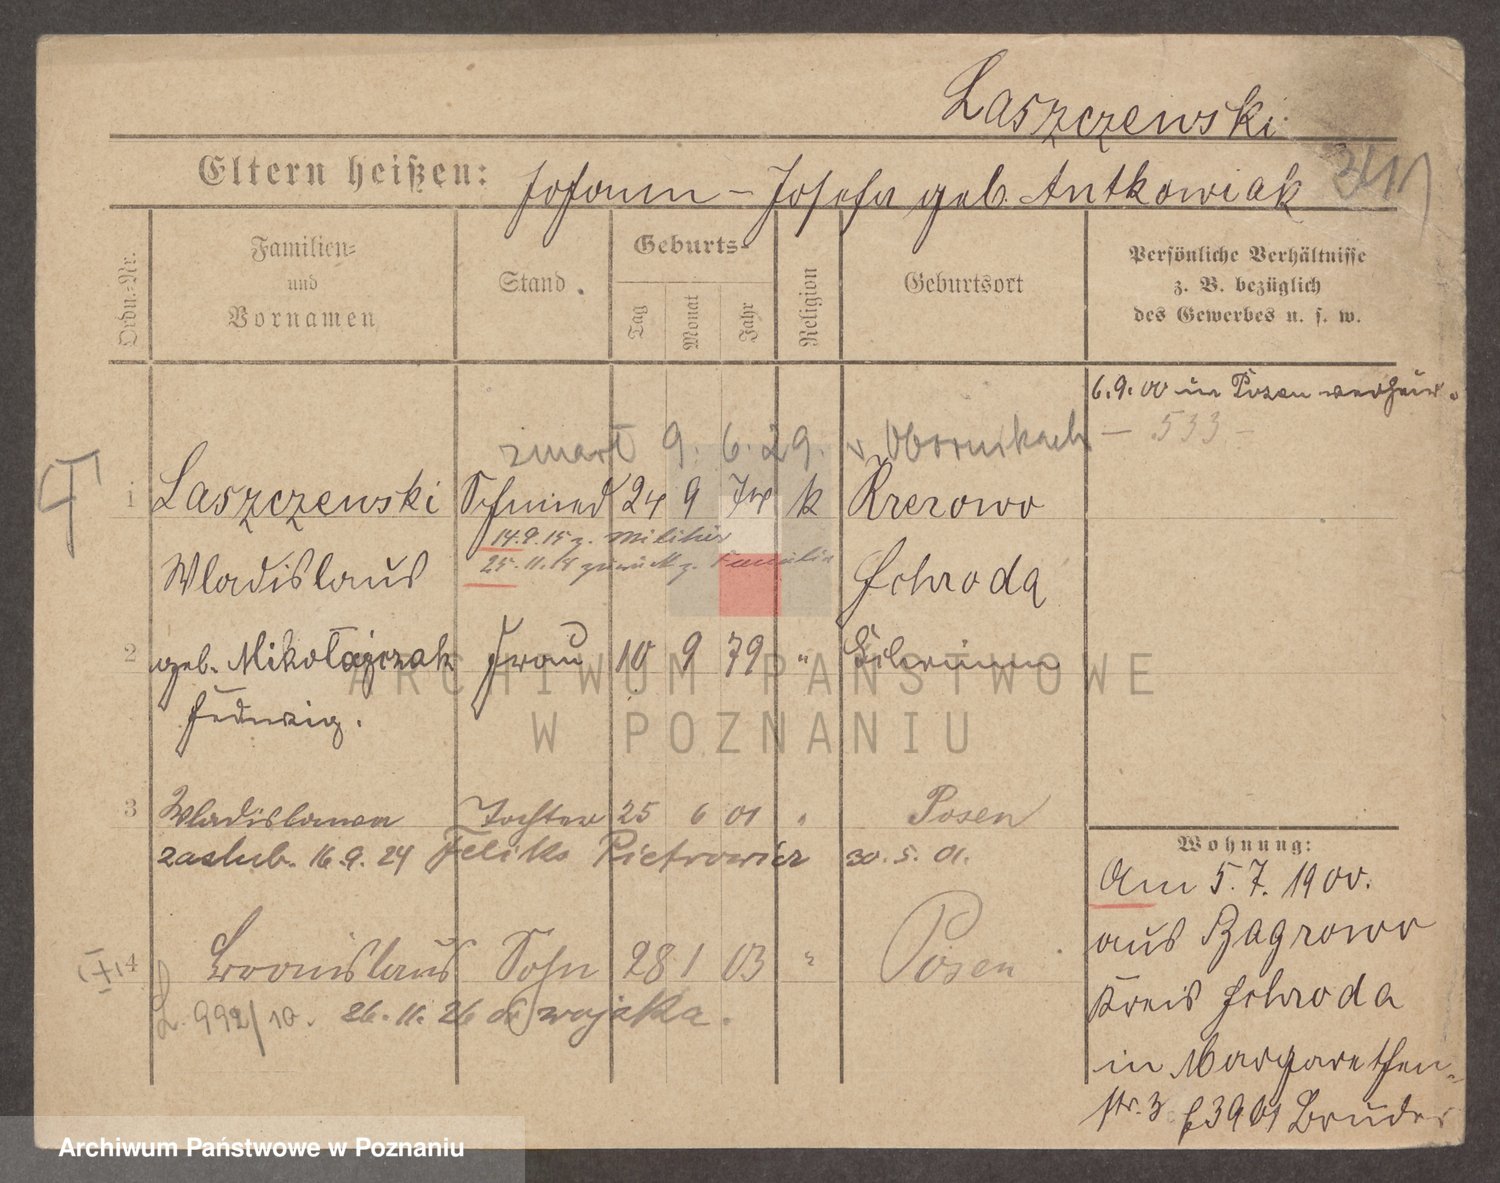 Laszczewski
Eltern heißen: Johann - Josefa geb. Antkowiak
Ordn.-Nr.
Familien-
und
Vornamen
Stand
Geburts-
Tag
Monat
Jahr
Religion
Geburtsort
Persönliche Verhältnisse
z. B. bezüglich
des Gewerbes u. s. w.
6.9.00 in Posen verheir.
zmarł 9. 6. 29. v. Obornikach - 533 -
1 Laszczewski Schmied 24 9 k Krerowo
14.9.15 z. Militär
Wladislaus Schroda
25.11.18 zurück z. Familie
2 geb. Mikołajczak Frau 10 9 79 " Schrimm
Hedwig.
3 Wladislawa Tochter 25 6 01 " Posen
zaślub. 16.9.24 Feliks Pietrowicz 30.5.01.
4 Bronislaus Sohn 28 1 03 " Posen
L. 992/10. 26.11.26 do wojska.
Wohnung:
Am 5.7.1900.
aus Zagrowo
Kreis Schroda
in Margarethen-
str. 3 3901 Bruder
ARCHIWUM PAŃSTWOWE
W POZNANIU
Archiwum Państwowe w Poznaniu